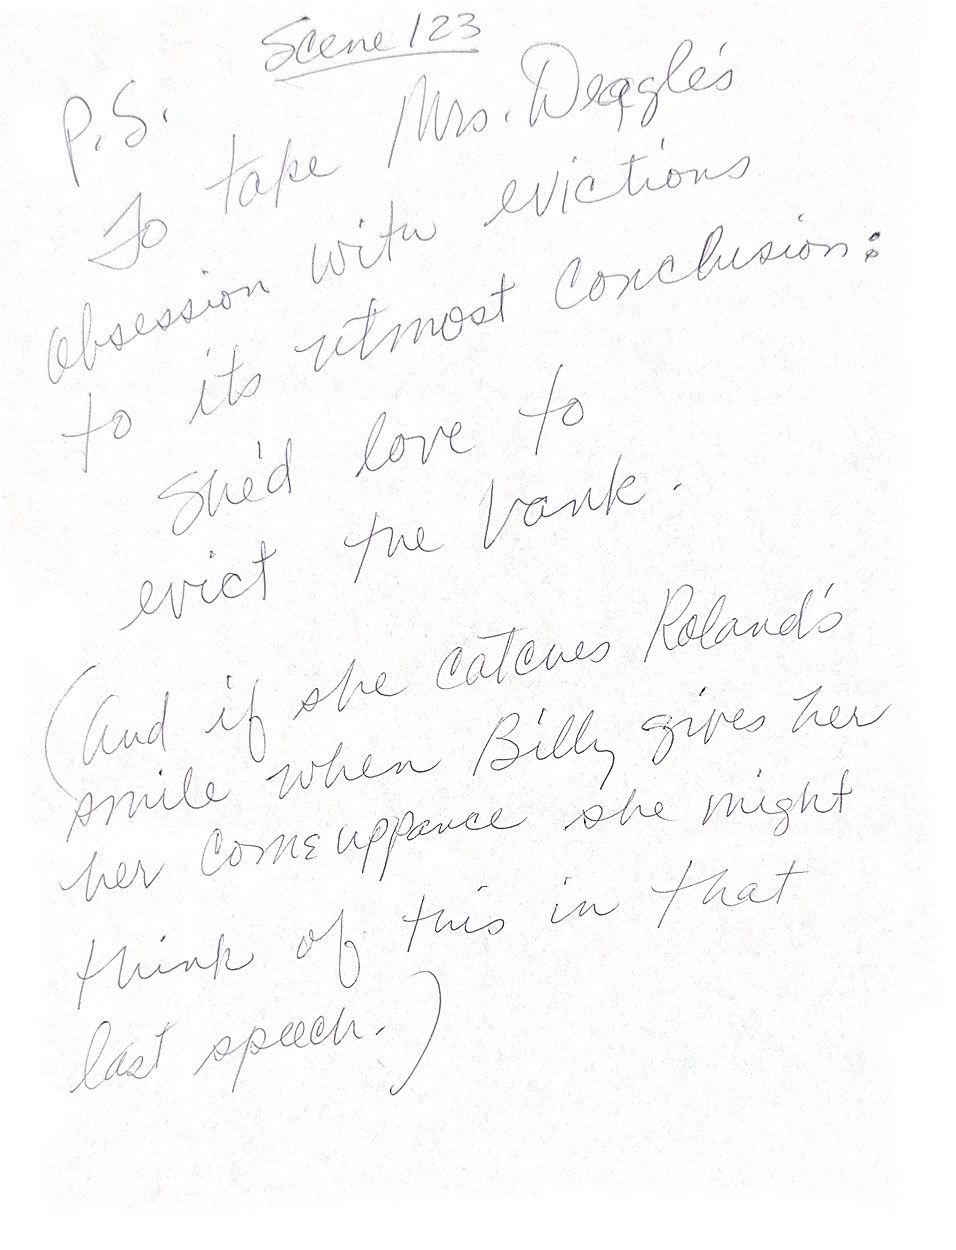 Scene 123
P.S.
To take Mrs. Deagle's
obsession with evictions
to its utmost conclusion:
She'd love to
evict the bank.
(And if she catches Roland's
smile when Billy gives her
her comeuppance she might
think of this in that
last speech.)